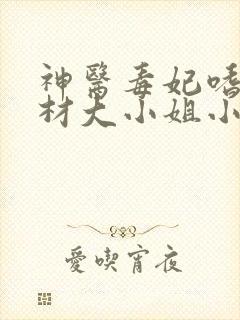 神醫毒妃嗜
材大小姐小
愛喫宵夜